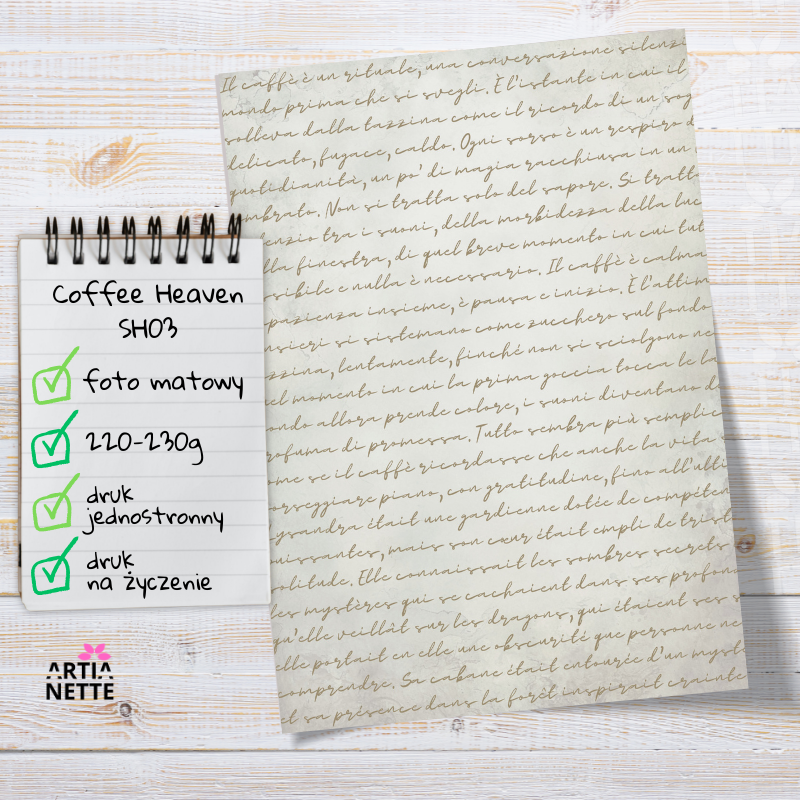 Coffee Heaven
SH03
foto matowy
220-230g
druk
jednostronny
druk
na życzenie
ARTIA
NETTE
Il caffè è un rituale, una conversazione silenzi
mondo prima che si svegli. È l'istante in cui il
solleva dalla tazzina come il ricordo di un sog
delicato, fugace, caldo. Ogni sorso è un respiro d
quotidianità, un po' di magia racchiusa in un
mbrato. Non si tratta solo del sapore. Si tratt
lenzio tra i suoni, della morbidezza della luc
lla finestra, di quel breve momento in cui tut
sibile e nulla è necessario. Il caffè è calma
pazienza insieme, è pausa e inizio. È l'attim
nsieri si sistemano come zucchero sul fondo
zzina, lentamente, finché non si sciolgono ne
el momento in cui la prima goccia tocca le la
ondo allora prende colore, i suoni diventano d
rofuma di promessa. Tutto sembra più semplic
ome se il caffè ricordasse che anche la vita
orseggiare piano, con gratitudine, fino all'ulti
ysandra était une gardienne dotée de compéten
uissantes, mais son cœur était empli de trist
olitude. Elle connaissait les sombres secrets
les mystères qui se cachaient dans ses profon
qu'elle veillât sur les dragons, qui étaient ses s
elle portait en elle une obscurité que personne ne
comprendre. Sa cabane était entourée d'un myst
et sa présence dans la forêt inspirait crainte